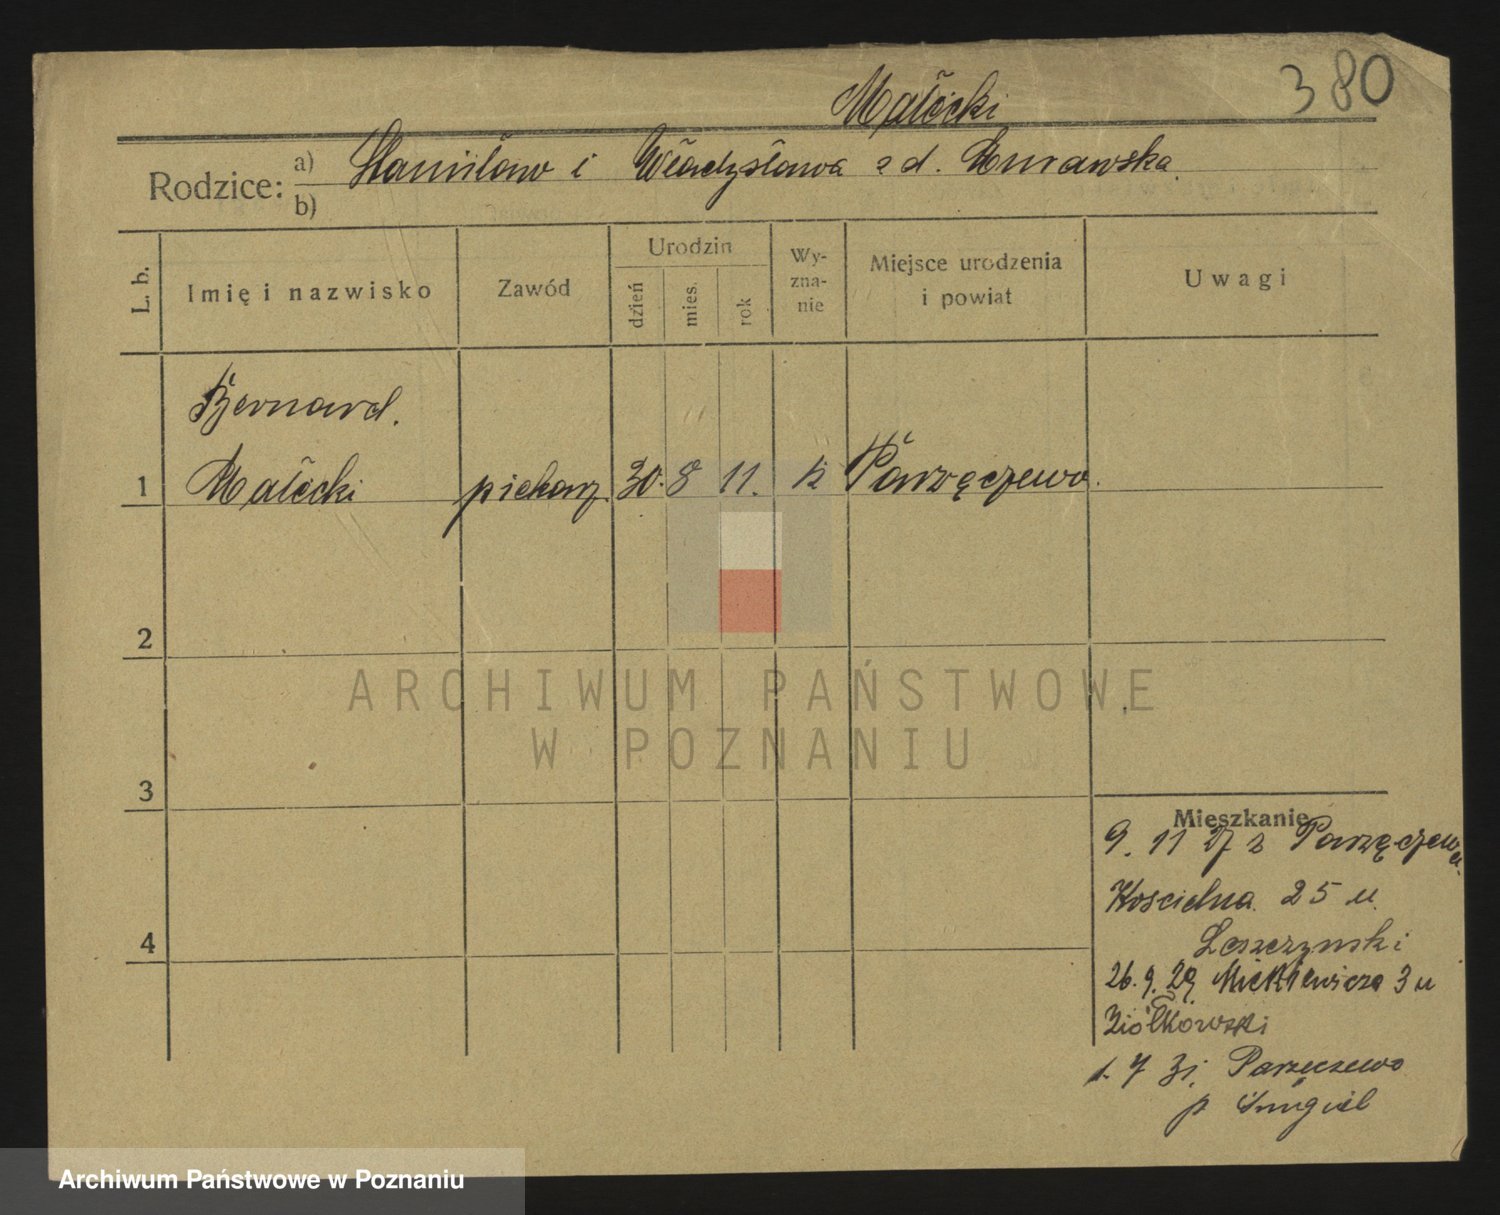 380
Małecki
Rodzice: a) Stanisław i Władysława z d.
b)
L. b. Imię i nazwisko Zawód Urodzin dzień mies. rok Wy-zna-nie Miejsce urodzenia i powiat Uwagi
Bernard.
1 Małecki piekarz 30. 8 11. k Parzęczewo.
2
ARCHIWUM PAŃSTWOWE
W POZNANIU
3
Mieszkanie
9. 11 27 z Parzęczewa
Kościelna 25 u.
4
Leszczynski
26. 9. 29 Mickiewicza 3 u
Ziółkowski
1. 7 31. Parzęczewo
p Śmigiel
Archiwum Państwowe w Poznaniu